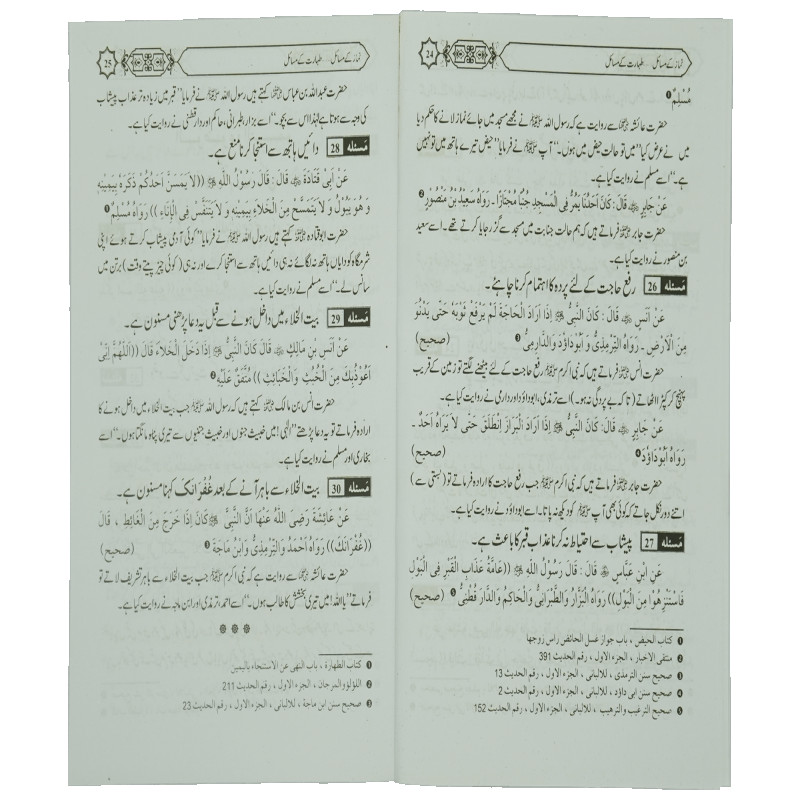 24 نماز کے مسائل... طہارت کے مسائل
مُسْلِمٌ ❶
حضرت عائشہ ﷞ سے روایت ہے کہ رسول اللہ ﷺ نے مجھے مسجد میں جائے نماز لانے کا حکم دیا
میں نے عرض کیا ''میں تو حالت حیض میں ہوں۔'' آپ ﷺ نے فرمایا ''حیض تیرے ہاتھ میں تو نہیں
ہے۔'' اسے مسلم نے روایت کیا ہے۔
عَنْ جَابِرٍ ﷜ قَالَ: كَانَ اَحَدُنَا يَمُرُّ فِي الْمَسْجِدِ جُنُبًا مُجْتَازًا۔ رَوَاهُ سَعِيدُ بْنُ مَنْصُوْرٍ ❷
حضرت جابر ﷜ فرماتے ہیں کہ ہم حالت جنابت میں مسجد سے گزر جایا کرتے تھے۔ اسے سعید
بن منصور نے روایت کیا ہے۔
مَسئله 26 رفع حاجت کے لئے پردہ کا اہتمام کرنا چاہئے۔
عَنْ اَنَسٍ ﷜ قَالَ: كَانَ النَّبِيُّ ﷺ اِذَا اَرَادَ الْحَاجَةَ لَمْ يَرْفَعْ ثَوْبَهُ حَتّٰى يَدْنُوَ
مِنَ الْاَرْضِ ۔ رَوَاهُ التِّرْمِذِيُّ وَ اَبُوْدَاوٗدَ وَالدَّارِمِيُّ ❸ (صحيح)
حضرت انس ﷜ فرماتے ہیں کہ نبی اکرم ﷺ رفع حاجت کے لئے بیٹھنے لگتے تو زمین کے قریب
پہنچ کر کپڑا اٹھاتے (تا کہ بے پردگی نہ ہو۔) اسے ترمذی، ابوداؤد اور دارمی نے روایت کیا ہے۔
عَنْ جَابِرٍ ﷜ قَالَ: كَانَ النَّبِيُّ ﷺ اِذَا اَرَادَ الْبَرَازَ اِنْطَلَقَ حَتّٰى لاَ يَرَاهُ اَحَدٌ ۔
رَوَاهُ اَبُوْدَاوٗدَ ❹ (صحيح)
حضرت جابر ﷜ فرماتے ہیں کہ نبی اکرم ﷺ جب رفع حاجت کا ارادہ فرماتے تو (بستی سے)
اتنے دور نکل جاتے کہ کوئی بھی آپ ﷺ کو دیکھ نہ پاتا۔ اسے ابوداؤد نے روایت کیا ہے۔
مَسئله 27 پیشاب سے احتیاط نہ کرنا عذاب قبر کا باعث ہے۔
عَنِ ابْنِ عَبَّاسٍ ﷜ قَالَ: قَالَ رَسُوْلُ اللهِ ﷺ ((عَامَّةُ عَذَابِ الْقَبْرِ فِي الْبَوْلِ
فَاسْتَنْزِهُوْا مِنَ الْبَوْلِ)) رَوَاهُ الْبَزَّارُ وَالطَّبْرَانِيُّ وَالْحَاكِمُ وَالدَّارَ قُطْنِيُّ ❺ (صحيح)
❶ كتاب الحيض ، باب جواز غسل الحائض راس زوجها
❷ منتقى الاخبار ، الجزء الاول ، رقم الحديث 391
❸ صحيح سنن الترمذى ، للالبانى ، الجزء الاول ، رقم الحديث 13
❹ صحيح سنن ابى داؤد ، للالبانى ، الجزء الاول ، رقم الحديث 2
❺ صحيح الترغيب والترهيب ، للالبانى ، الجزء الاول ، رقم الحديث 152
25 نماز کے مسائل... طہارت کے مسائل
حضرت عبداللہ بن عباس ﷠ کہتے ہیں رسول اللہ ﷺ نے فرمایا ''قبر میں زیادہ تر عذاب پیشاب
کی وجہ سے ہوتا ہے لہٰذا اس سے بچو۔'' اسے بزار، طبرانی، حاکم اور دار قطنی نے روایت کیا ہے۔
مَسئله 28 دائیں ہاتھ سے استنجا کرنا منع ہے۔
عَنْ اَبِيْ قَتَادَةَ ﷜ قَالَ: قَالَ رَسُوْلُ اللهِ ﷺ ((لاَ يَمَسَّنَّ اَحَدُكُمْ ذَكَرَهُ بِيَمِيْنِهِ
وَ هُوَ يَبُوْلُ وَ لاَ يَتَمَسَّحْ مِنَ الْخَلاَءِ بِيَمِيْنِهِ وَ لاَ يَتَنَفَّسْ فِي الْاِنَاءِ )) رَوَاهُ مُسْلِمٌ ❶
حضرت ابوقتادہ ﷜ کہتے ہیں رسول اللہ ﷺ نے فرمایا ''کوئی آدمی پیشاب کرتے ہوئے اپنی
شرمگاہ کو دایاں ہاتھ نہ لگائے نہ ہی دائیں ہاتھ سے استنجا کرے اور نہ ہی (کوئی چیز پیتے وقت) برتن میں
سانس لے۔'' اسے مسلم نے روایت کیا ہے۔
مَسئله 29 بیت الخلاء میں داخل ہونے سے قبل یہ دعا پڑھنی مسنون ہے۔
عَنْ اَنَسِ بْنِ مَالِكٍ ﷜ قَالَ كَانَ النَّبِيُّ ﷺ اِذَا دَخَلَ الْخَلاَءَ قَالَ ((اَللّٰهُمَّ اِنِّيْ
اَعُوْذُبِكَ مِنَ الْخُبُثِ وَالْخَبَائِثِ )) مُتَّفَقٌ عَلَيْهِ ❷
حضرت انس بن مالک ﷜ کہتے ہیں کہ رسول اللہ ﷺ جب بیت الخلاء میں داخل ہونے کا
ارادہ فرماتے تو یہ دعا پڑھتے ''الٰہی! میں خبیث جنوں اور خبیث جنتیوں سے تیری پناہ مانگتا ہوں۔'' اسے
بخاری اور مسلم نے روایت کیا ہے۔
مَسئله 30 بیت الخلاء سے باہر آنے کے بعد غُفْرَانَکَ کہنا مسنون ہے۔
عَنْ عَائِشَةَ رَضِيَ اللهُ عَنْهَا اَنَّ النَّبِيَّ ﷺ كَانَ اِذَا خَرَجَ مِنَ الْغَائِطِ ، قَالَ
((غُفْرَانَكَ)) رَوَاهُ اَحْمَدُ وَالتِّرْمِذِيُّ وَابْنُ مَاجَةَ ❸ (صحيح)
حضرت عائشہ ﷞ سے روایت ہے کہ نبی اکرم ﷺ جب بیت الخلاء سے باہر تشریف لاتے تو
فرماتے ''یا اللہ! میں تیری بخشش کا طالب ہوں۔'' اسے احمد، ترمذی اور ابن ماجہ نے روایت کیا ہے۔
❶ كتاب الطهارة ، باب النهى عن الاستنجاء باليمين
❷ اللؤلؤ والمرجان ، الجزء الاول ، رقم الحديث 211
❸ صحيح سنن ابن ماجة ، للالبانى ، الجزء الاول ، رقم الحديث 23